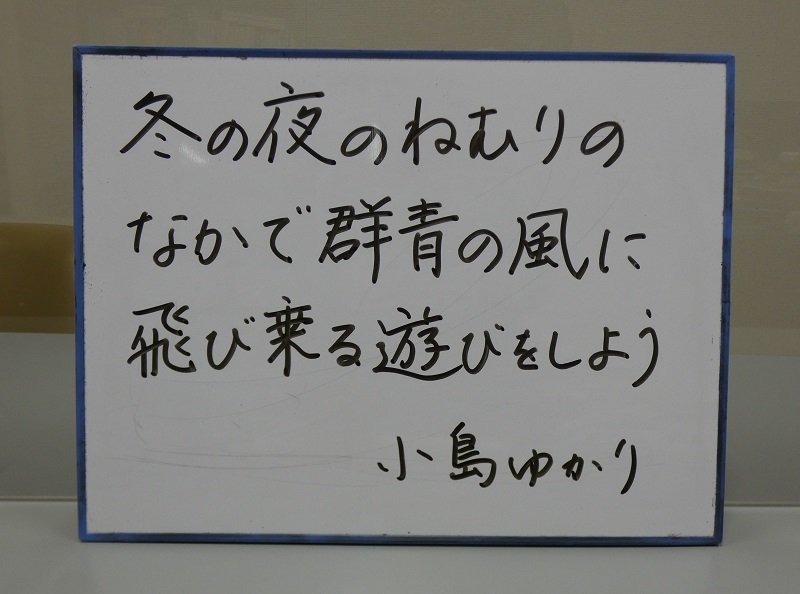 冬の夜のねむりの
なかで群青の風に
飛び乗る遊びをしよう
小島ゆかり